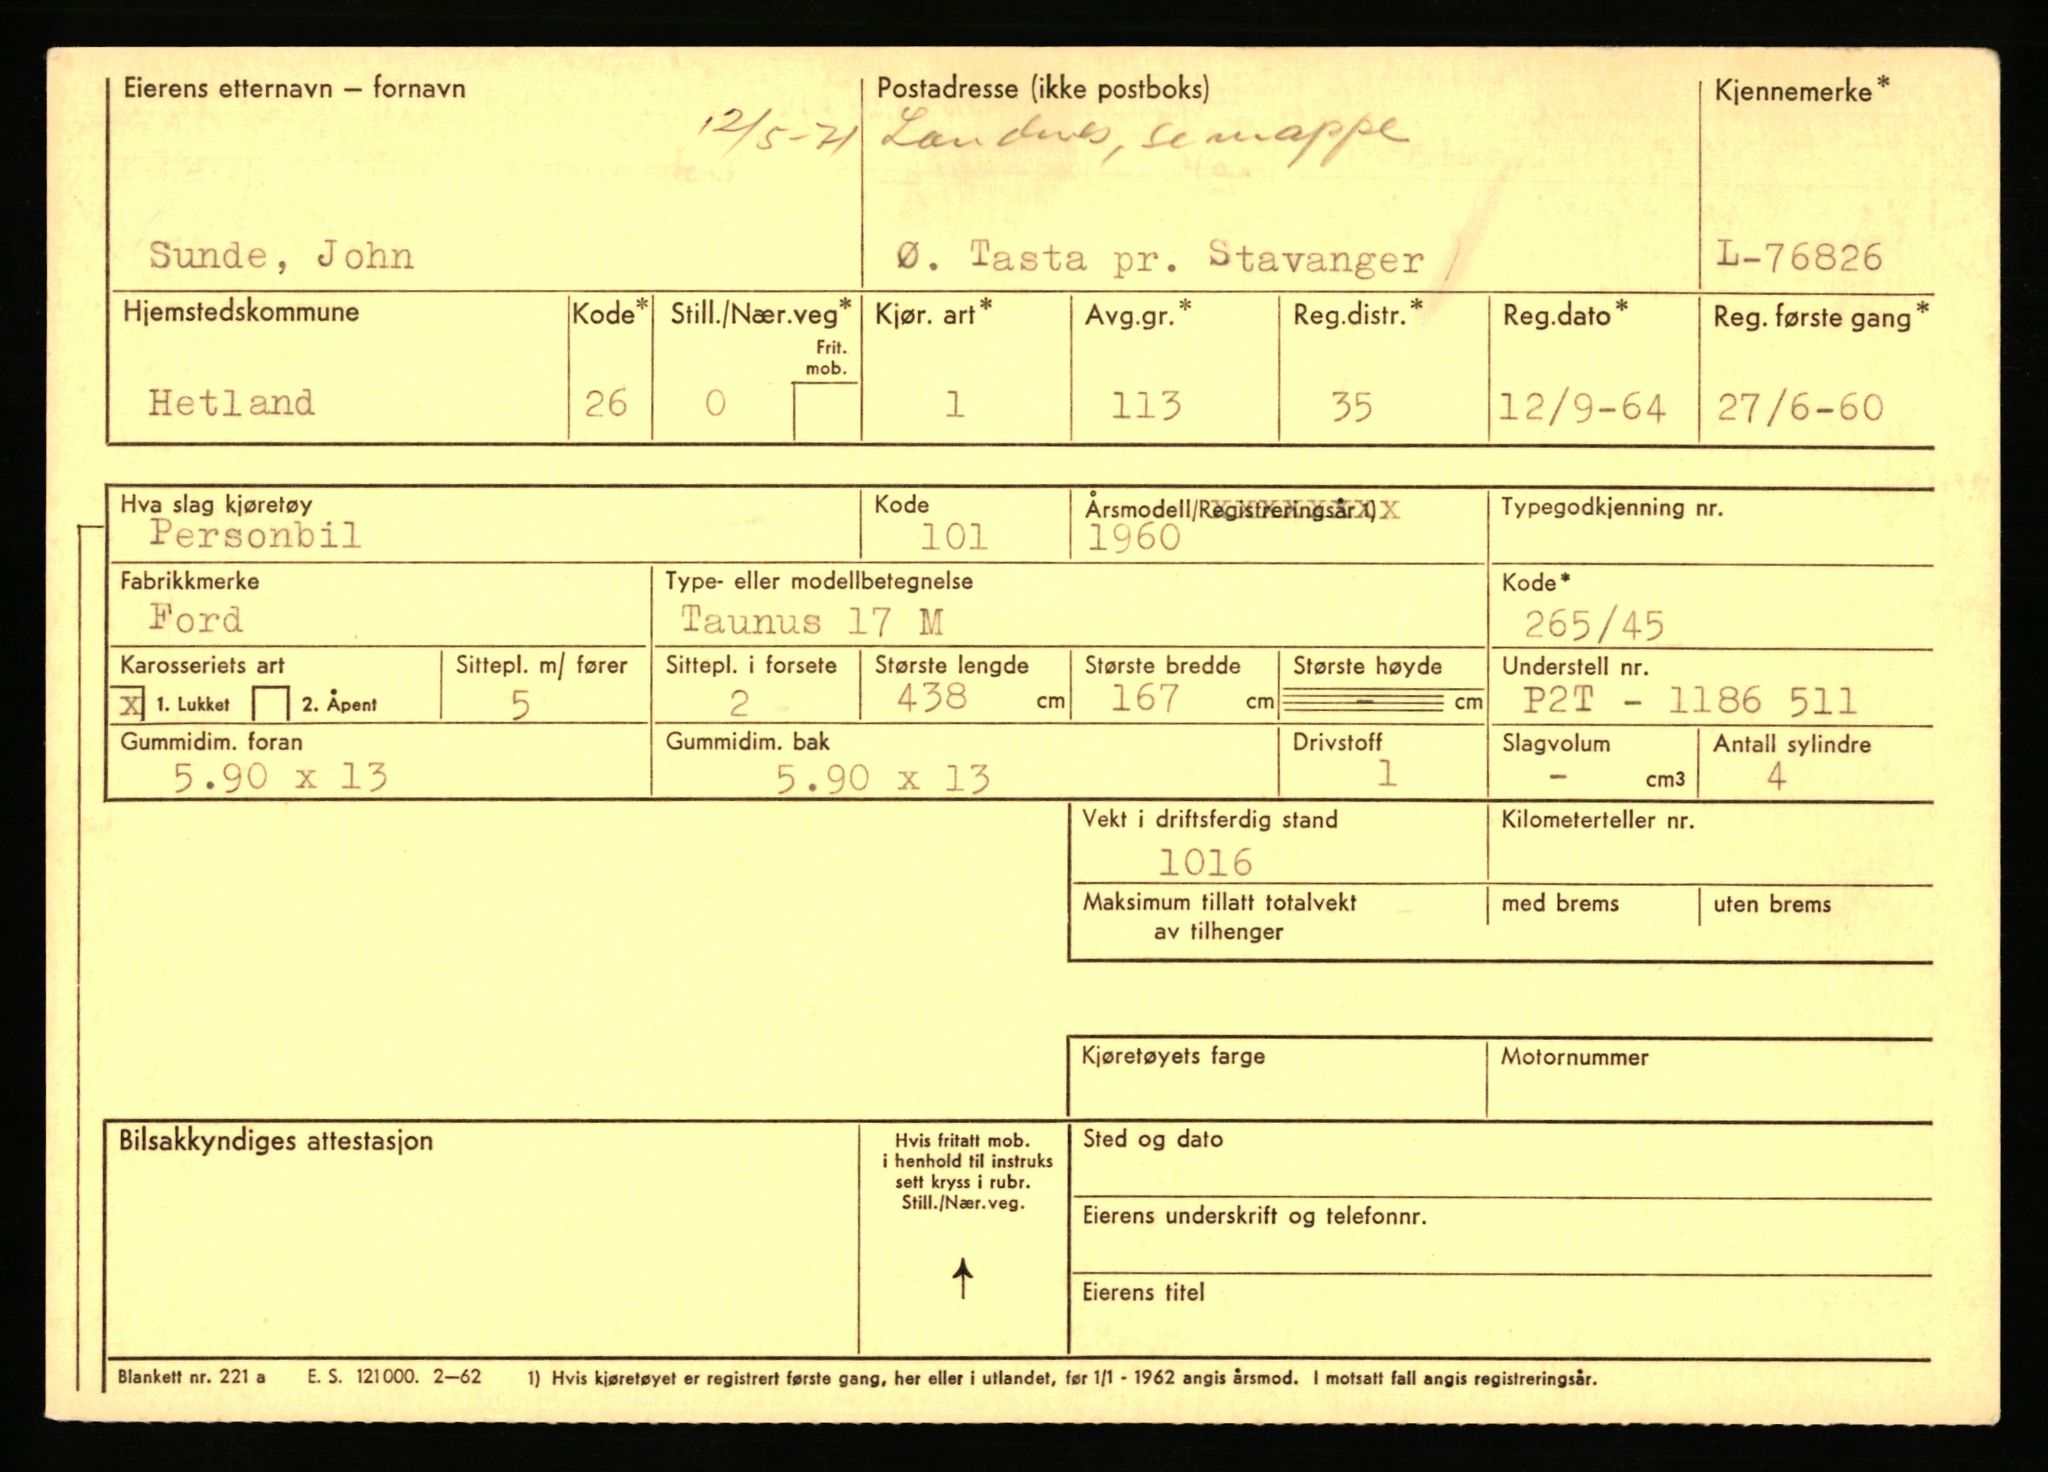 Eierens etternavn – fornavn
Postadresse (ikke postboks)
Kjennemerke*
12/5-71
se mappe
Sunde, John
Ø. Tasta pr. Stavanger
L-76826
Hjemstedskommune
Kode*
Still./Nær.veg*
Frit.
mob.
Kjør. art*
Avg.gr.*
Reg.distr.*
Reg.dato*
Reg. første gang*
Hetland
26
0
1
113
35
12/9-64
27/6-60
Hva slag kjøretøy
Kode
Årsmodell/Registreringsår 1)
Typegodkjenning nr.
Personbil
101
1960
Fabrikkmerke
Type- eller modellbetegnelse
Kode*
Ford
Taunus 17 M
265/45
Karosseriets art
Sittepl. m/ fører
Sittepl. i forsete
Største lengde
Største bredde
Største høyde
Understell nr.
x 1. Lukket
2. Åpent
5
2
438 cm
167 cm
- cm
P2T - 1186 511
Gummidim. foran
Gummidim. bak
Drivstoff
Slagvolum
Antall sylindre
5.90 x 13
5.90 x 13
1
- cm3
4
Vekt i driftsferdig stand
Kilometerteller nr.
1016
Maksimum tillatt totalvekt
av tilhenger
med brems
uten brems
Kjøretøyets farge
Motornummer
Bilsakkyndiges attestasjon
Hvis fritatt mob.
i henhold til instruks
sett kryss i rubr.
Still./Nær.veg.
Sted og dato
Eierens underskrift og telefonnr.
Eierens titel
Blankett nr. 221 a E. S. 121000. 2–62 1) Hvis kjøretøyet er registrert første gang, her eller i utlandet, før 1/1 - 1962 angis årsmod. I motsatt fall angis registreringsår.